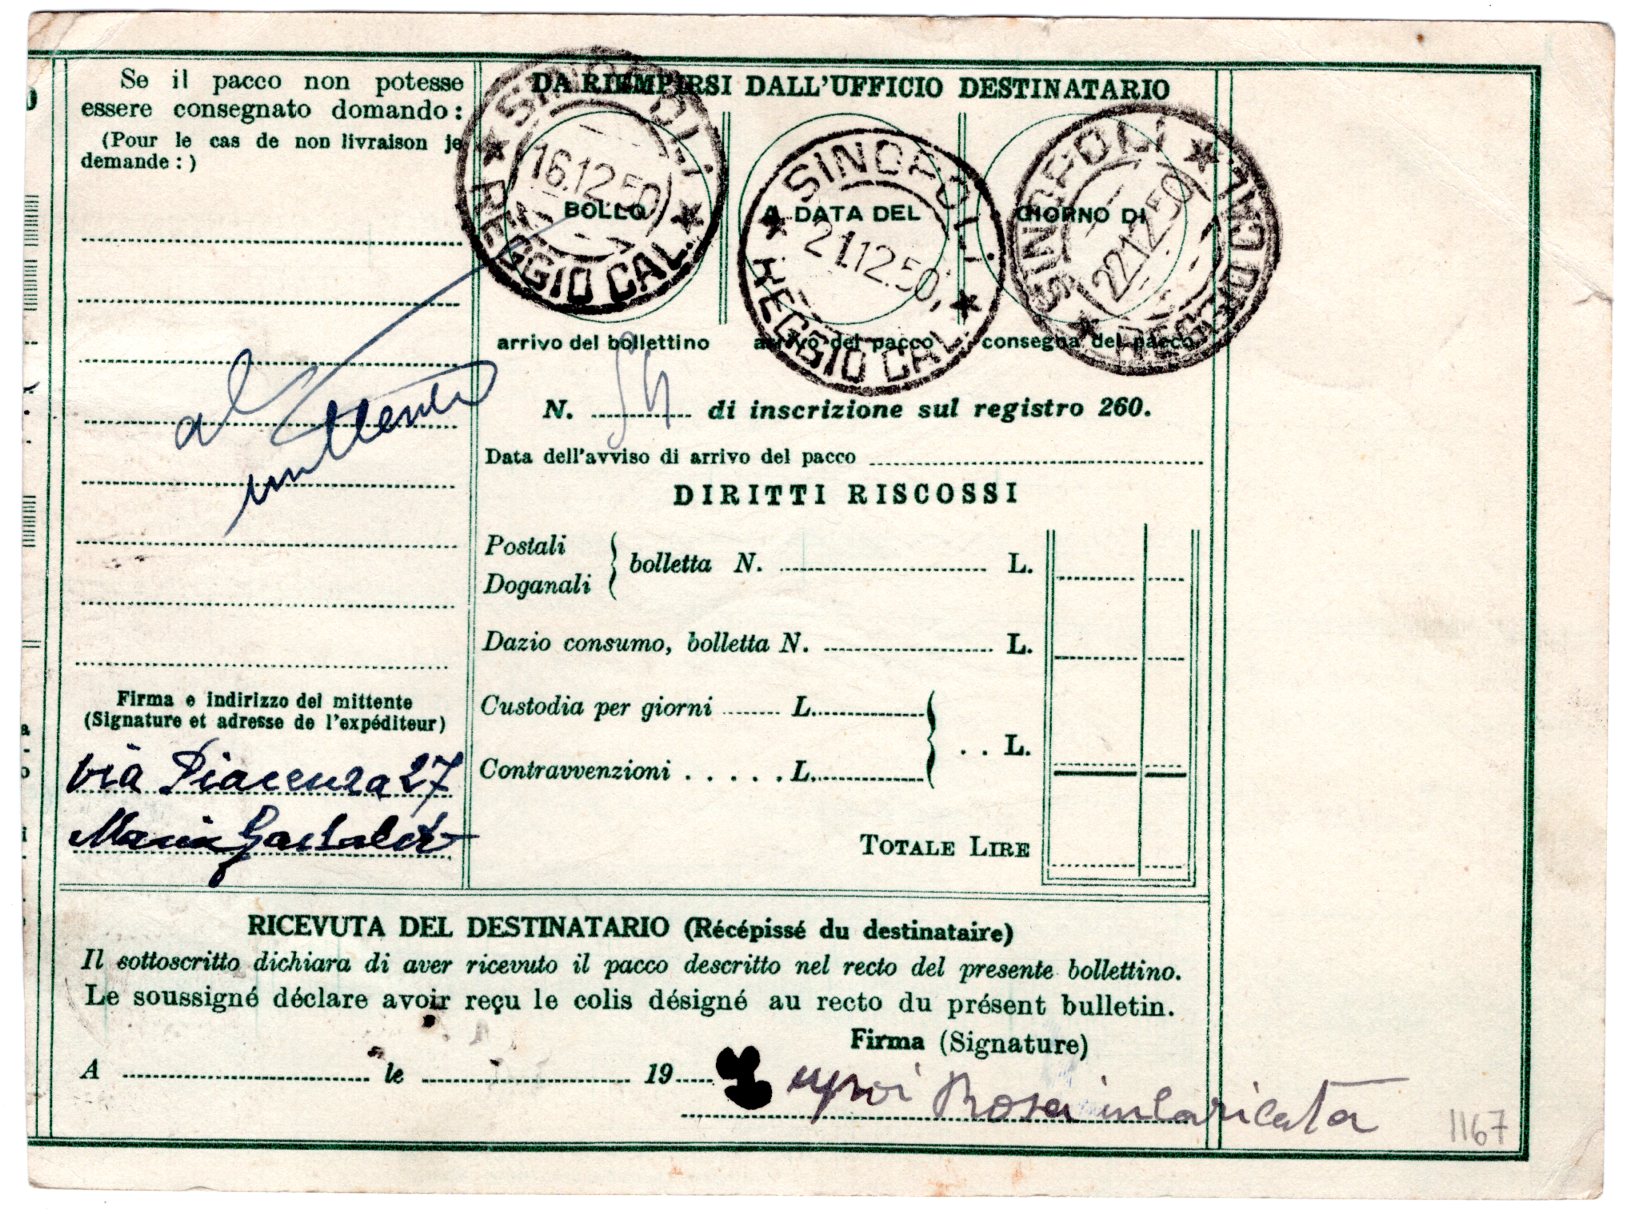 Se il pacco non potesse
essere consegnato domando:
(Pour le cas de non livraison je
demande:)
al
mittente
Firma e indirizzo del mittente
(Signature et adresse de l'expéditeur)
via Piacenza 27
Maria
DA RIEMPIRSI DALL'UFFICIO DESTINATARIO
SINOPOLI
16.12.50
REGGIO CAL.
BOLLO
arrivo del bollettino
SINOPOLI
A DATA DEL
21.12.50
REGGIO CAL.
arrivo del pacco
SINOPOLI
GIORNO DI
22.12.50
REGGIO CAL.
consegna del pacco
N. ........... di inscrizione sul registro 260.
Data dell'avviso di arrivo del pacco
DIRITTI RISCOSSI
Postali
Doganali
bolletta N. ........... L.
Dazio consumo, bolletta N. ........... L.
Custodia per giorni ........ L.
Contravvenzioni . . . . . L.
. . L.
TOTALE LIRE
RICEVUTA DEL DESTINATARIO (Récépissé du destinataire)
Il sottoscritto dichiara di aver ricevuto il pacco descritto nel recto del presente bollettino.
Le soussigné déclare avoir reçu le colis désigné au recto du présent bulletin.
Firma (Signature)
A ........... le ........... 19.....
Rosa incaricata
1167